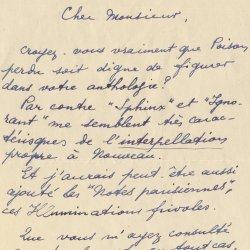 Cher Monsieur,
Croyez-vous vraiment que Poison
perdu soit digne de figurer
dans votre anthologie?
Par contre "Sphinx" et "Igno-
rant" me semblent très carac-
téristiques de l'interpellation
propre à Nouveau.
Et j'aurais peut-être aussi
ajouté les "Notes parisiennes",
ces Illuminations frivoles.
Que vous m'ayez consulté
cas,